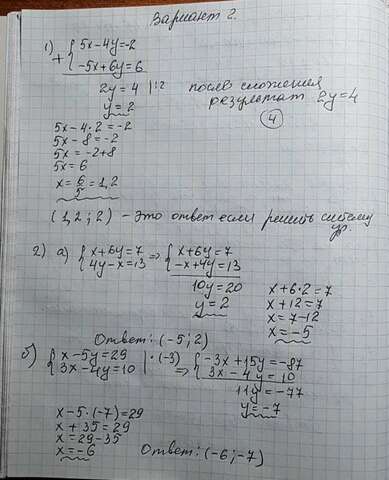 Вариант 2.
1) + { 5x-4y=-2
-5x+6y=6
2y=4 |:2
y=2
после сложения
результат 2y=4
4
5x-4·2=-2
5x-8=-2
5x=-2+8
5x=6
x=6/5=1,2
(1,2; 2) - это ответ если решить систему
ур.
2) а) { x+6y=7 ⇒ { x+6y=7
4y-x=13 -x+4y=13
10y=20
y=2
x+6·2=7
x+12=7
x=7-12
x=-5
Ответ: (-5; 2)
б) { x-5y=29 |·(-3) ⇒ { -3x+15y=-87
3x-4y=10 3x-4y=10
11y=-77
y=-7
x-5·(-7)=29
x+35=29
x=29-35
x=-6
Ответ: (-6; -7)